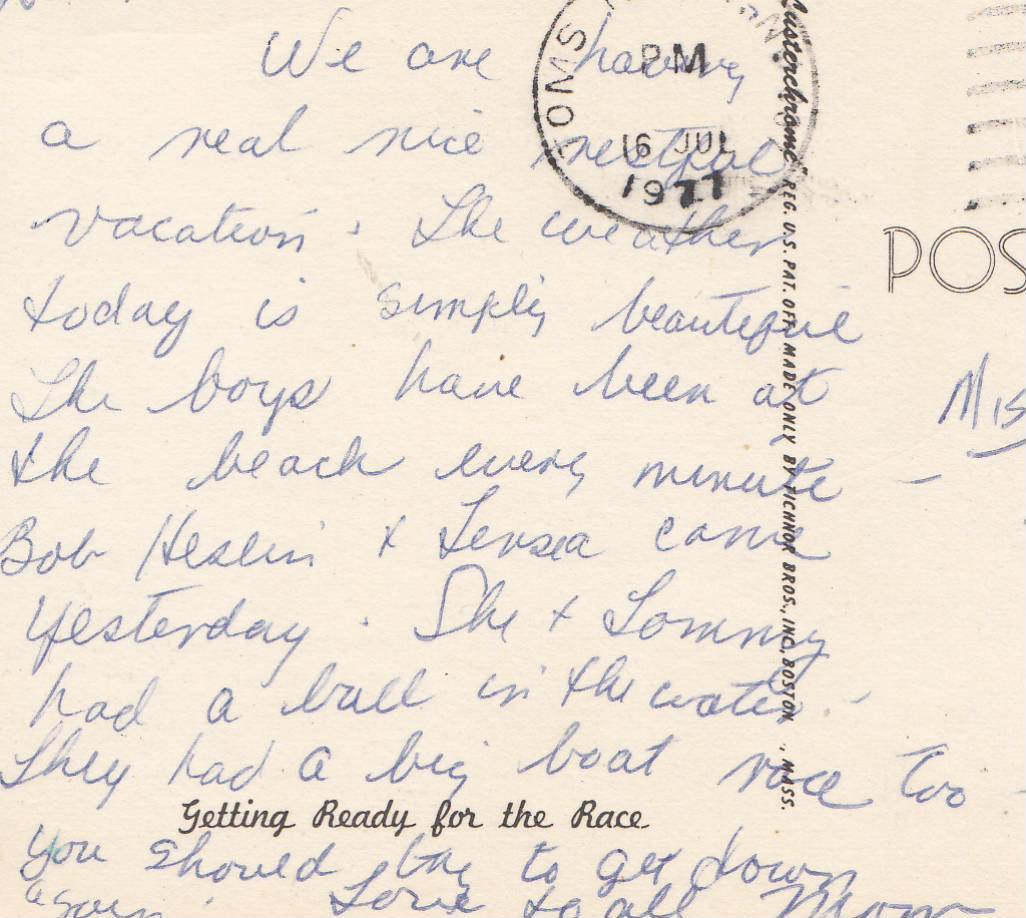 We are having
a real nice restful
vacation. The weather
today is simply beautiful
The boys have been at
the beach every minute -
Bob Heslin + Teresa came
yesterday. She + Tommy
had a ball in the water -
They had a big boat race too -
Getting Ready for the Race
you should try to get down
again. Love to all Mom
TOMS
PM
16 JUL
1977
Custerchrome" REG. U.S. PAT. OFF. MADE ONLY BY TICHNOR BROS., INC., BOSTON, MASS.
POS
Mis